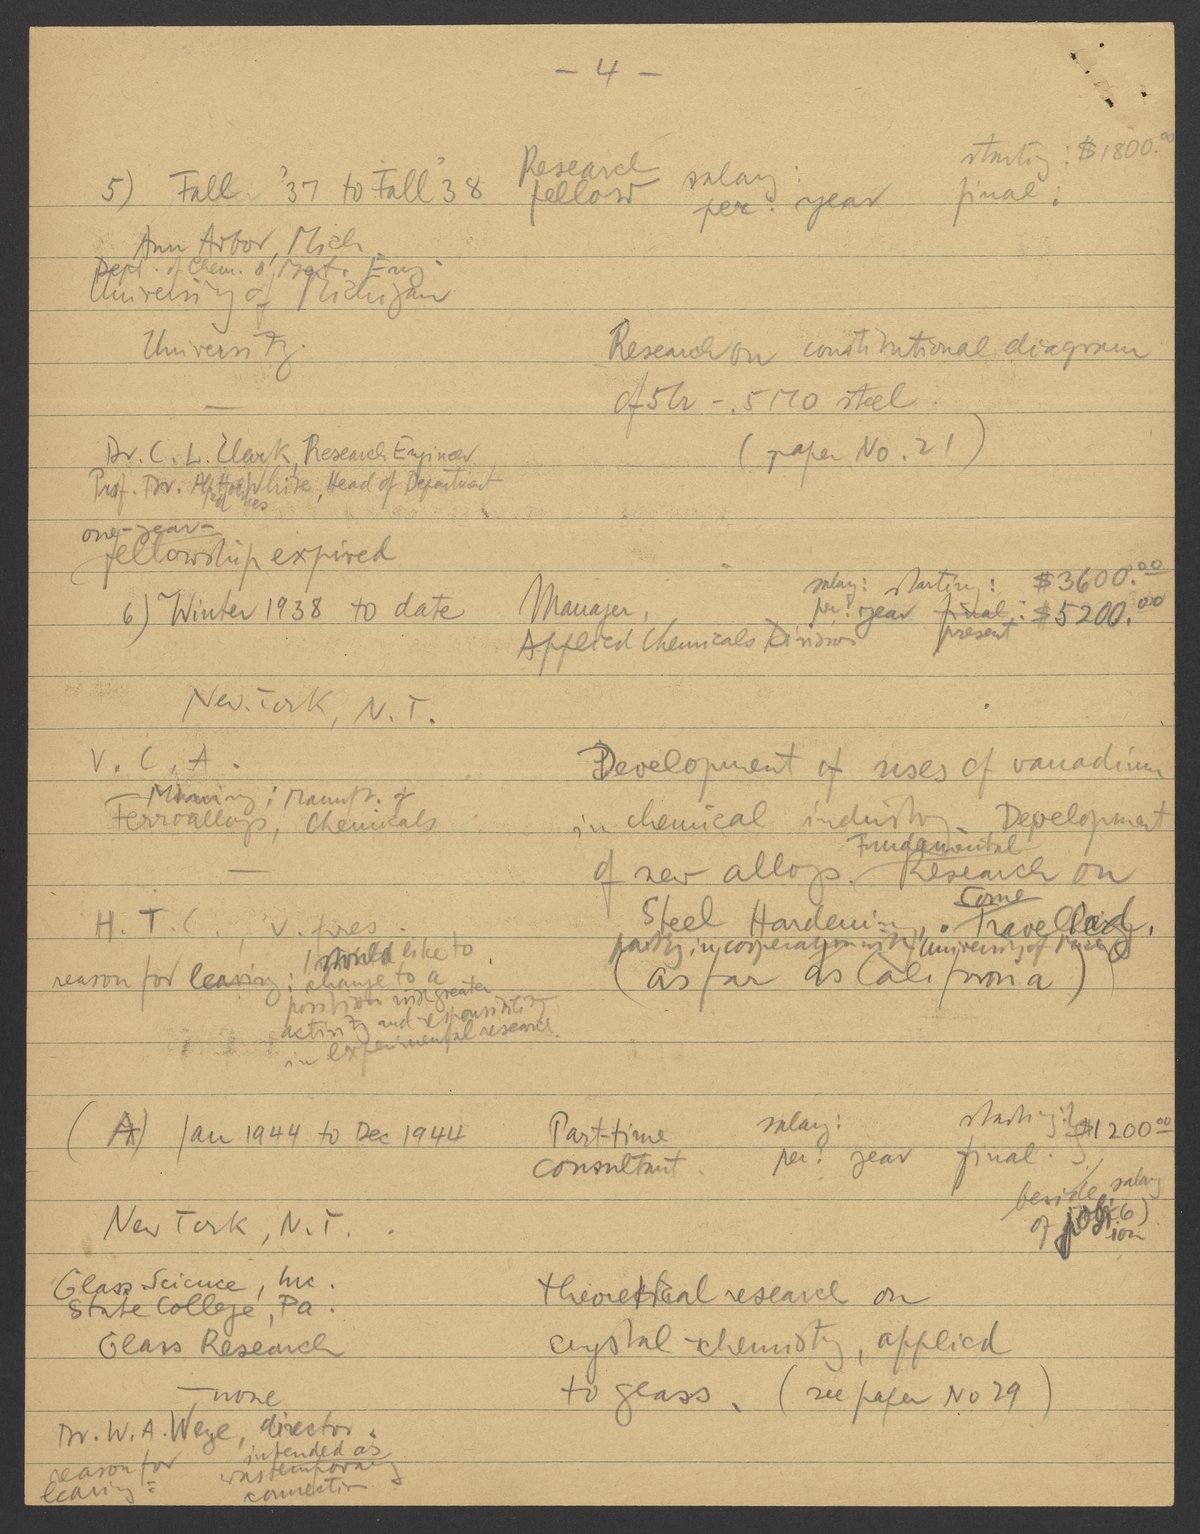 - 4 -
5) Fall '37 to Fall '38 Research fellow salary: per: year starting: $1800.00 final:
Ann Arbor, Mich
Dept. of Chem. & Met. Eng.
University of Michigan
University.
Research on constitutional diagram
of 5Cr - .5 MO steel
—
(paper No. 21)
Dr. C. L. Clark, Research Engineer
Prof. Dr. White, Head of Department
one-year-
fellowship expired
6) Winter 1938 to date Manager, Applied Chemicals Division salary: per: year starting: $3600.00 final: present $5200.00
New York, N.Y.
V. C. A.
Development of uses of vanadium
— Mining; Manuf. of
Ferroalloys, Chemicals
in chemical industry. Development
of new alloys. Fundamental Research on
—
H. T. C., v. pres.
Steel Hardening. Some Travelling.
partly in cooperation with University of
(as far as California)
reason for leaving: I would like to
change to a
position with greater
activity and responsibility
in experimental research.
(A) Jan 1944 to Dec 1944 Part-time consultant. salary: per: year starting: final: } $1200.00
beside salary
of (6)
New York, N.Y.
Glass Science, Inc.
State College, Pa.
theoretical research on
Glass Research
crystal-chemistry, applied
— none
to glass. (see paper No 29)
Dr. W. A. Weyl, director.
reason for
leaving:
intended as
was temporary
connection